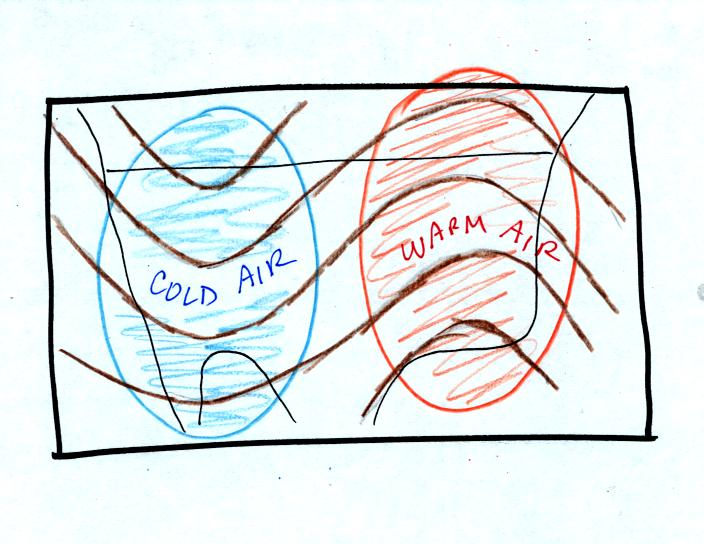 COLD AIR
WARM AIR